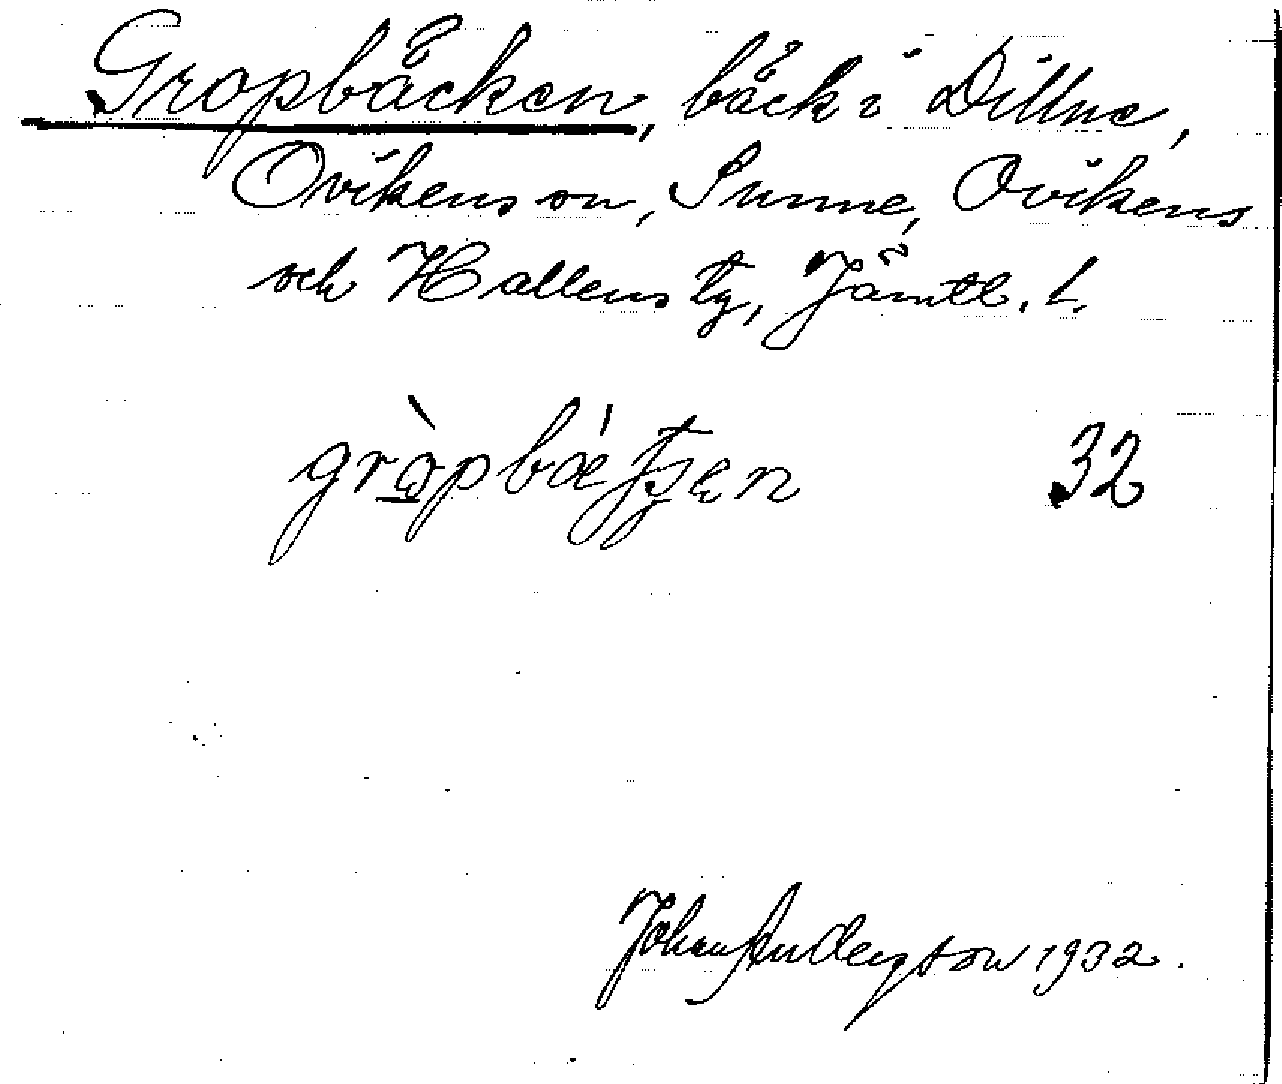 Gropbäcken, bäck i Dillne,
Ovikens sn, Sunne, Ovikens
och Hallens tg, Jämtl. l.
32
Johan Anderson 1932.